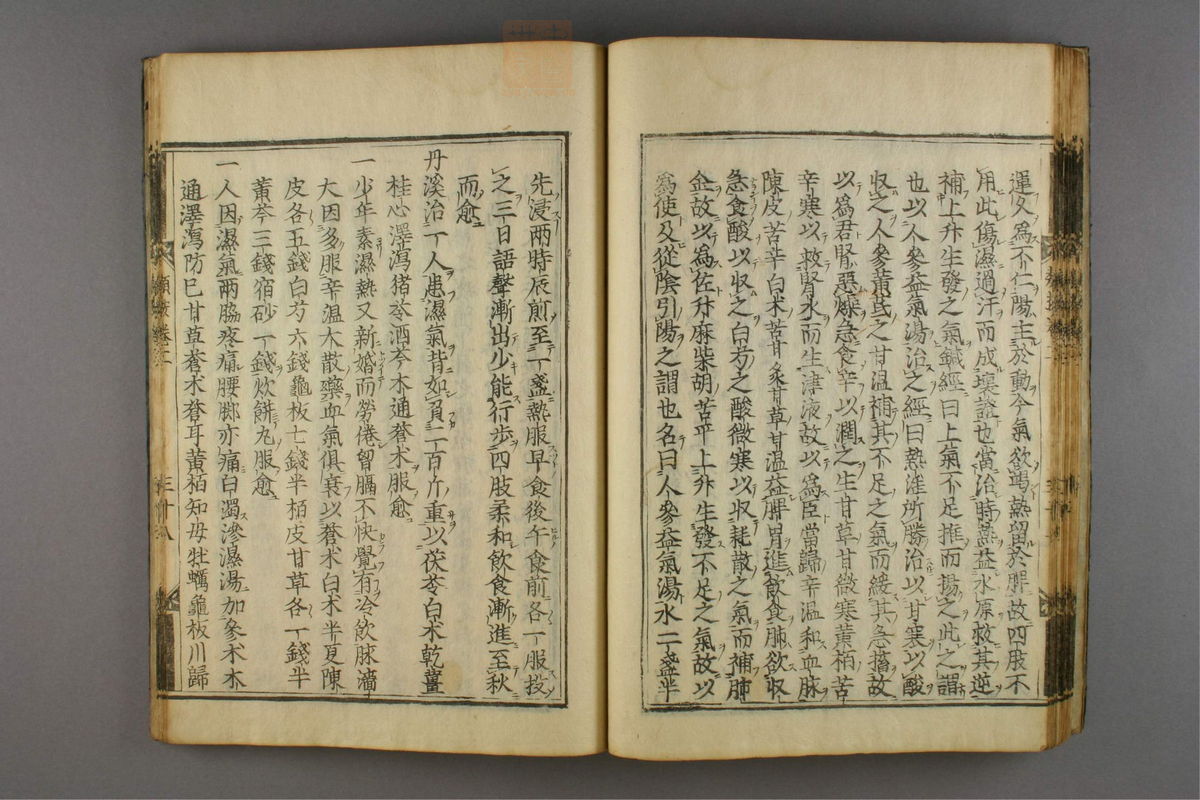 運久為不仁陽主於動今氣欲竭熱留於脾故四肢不
用此傷濕過汗而成壞證也當治時熱益水原救其逆
補上升生發之氣鍼經曰上氣不足推而揚之此之謂
也以人參益氣湯治之經曰熱淫所勝治以甘寒以酸
収之人參黃芪之甘温補其不足之氣而緩其急搐故
以為君腎惡燥急食辛以潤之生甘草甘微寒黃栢苦
辛寒以救腎水而生津液故以為臣當歸辛温和血脉
陳皮苦辛白术苦甘炙甘草甘温益脾胃進飲食肺欲収
急食酸以収之白芍之酸微寒以収耗散之氣而補肺
金故以為佐升麻柴胡苦平上升生發不足之氣故以
為使及從陰引陽之謂也名曰人參益氣湯水二盞半
先浸兩時辰煎至一盞熱服早食後午食前各一服投
之三日語聲漸出少能行步四肢柔和飲食漸進至秋
而愈
丹溪治一人患濕氣背如負二百斤重以茯苓白术乾薑
桂心澤瀉猪苓酒芩木通蒼术服愈
一少年素濕熱又新婚而勞倦曾膈不快覺有冷飲脉濇
大因多服辛温大散藥血氣俱衰以蒼术白术半夏陳
皮各五錢白芍六錢龜板七錢半栢皮甘草各一錢半
黃芩三錢宿砂一錢炊餅丸服愈
一人因濕氣兩脇疼痛腰脚亦痛白濁滲濕湯加參术木
通澤瀉防巳甘草蒼术蒼耳黃栢知母牡蠣龜板川歸